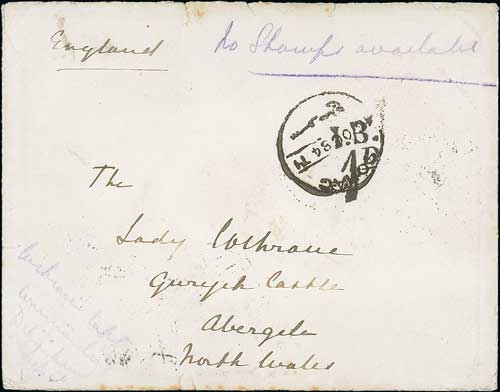 England
No Stamps available
I.B.
1D
The
Lady Cochrane
Gwrych Castle
Abergele
North Wales